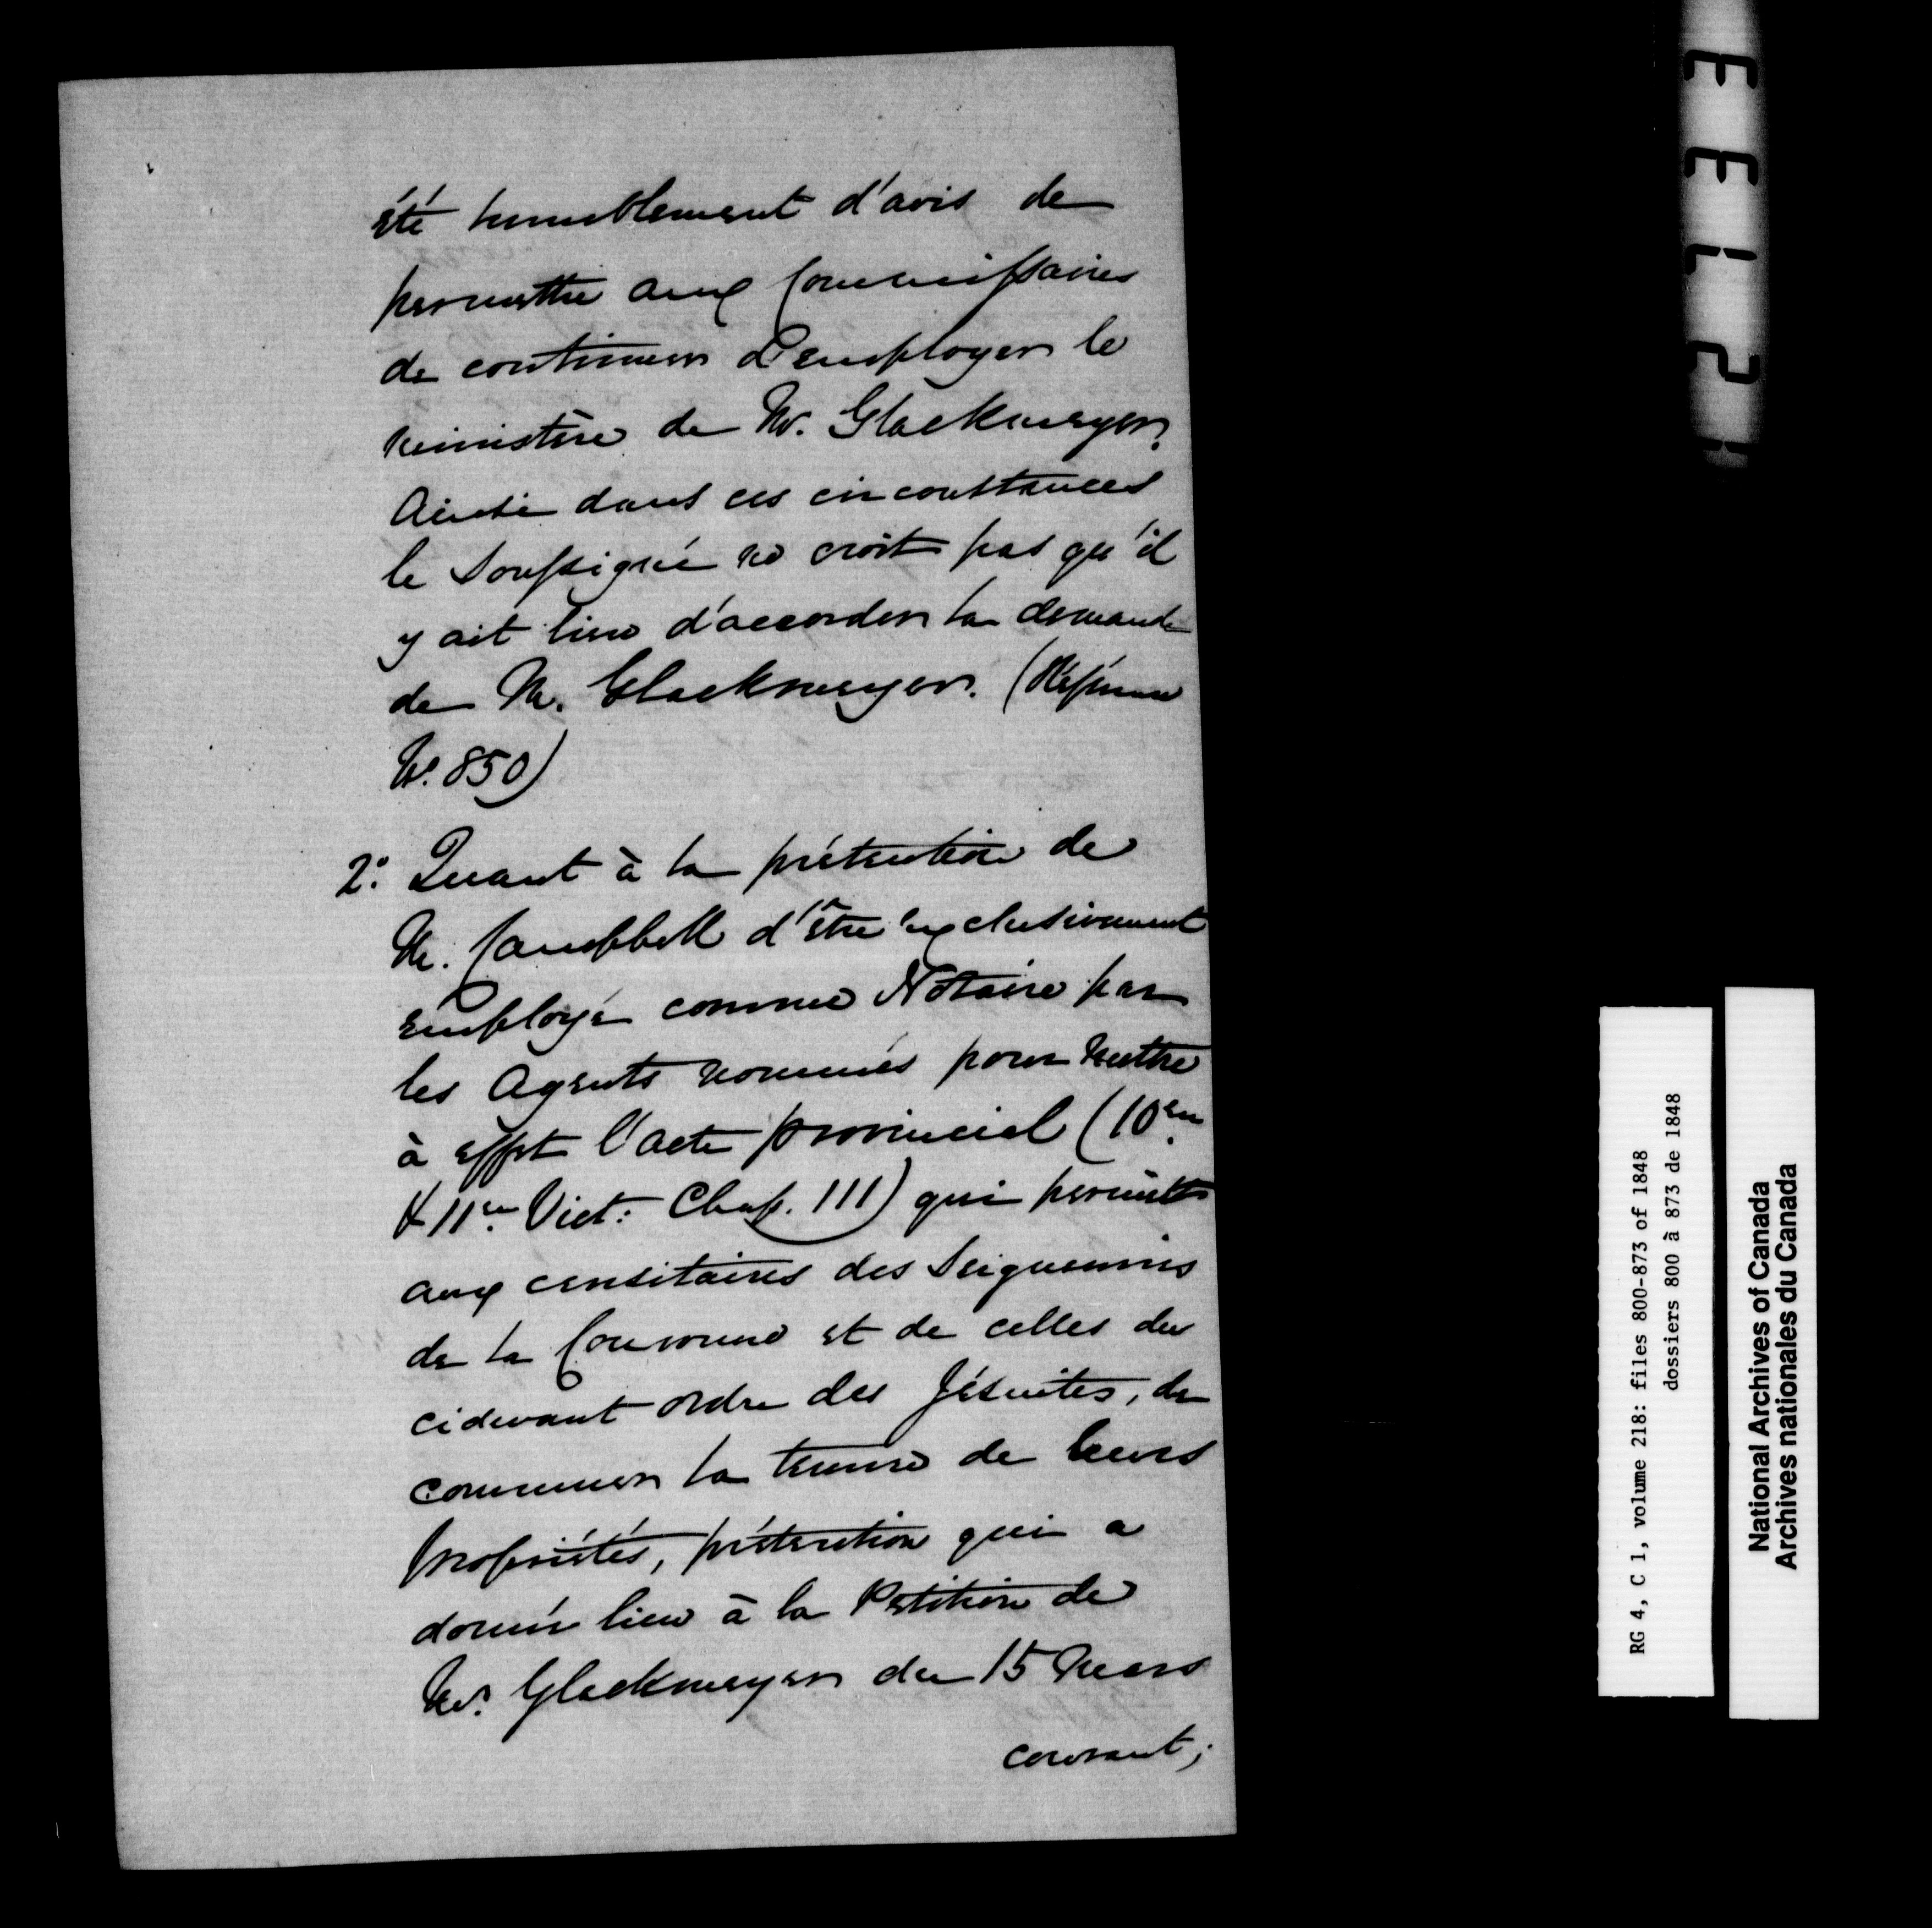 été humblement d'avis de
permettre aux Commissaires
de continuer d'employer le
ministère de Mr. Glackmeyer.
Ainsi dans ces circonstances
le Soussigné ne croit pas qu'il
y ait lieu d'accorder la demande
de Mr. Glackmeyer. (Référence
No. 850)
2º. Quant à la prétention de
Mr. Campbell d'être exclusivement
employé comme Notaire par
les Agents nommés pour mettre
à effet l'acte provincial (10em
& 11em Vict: Chap. III) qui permet
aux censitaires des Seigneuries
de la Couronne et de celles du
cidevant ordre des Jésuites, de
commuer la tenure de leurs
propriétés, prétention qui a
donné lieu à la Petition de
Mr. Glackmeyer du 15 Mars
courant;
EE12
RG 4, C 1, volume 218: files 800-873 of 1848
dossiers 800 à 873 de 1848
National Archives of Canada
Archives nationales du Canada